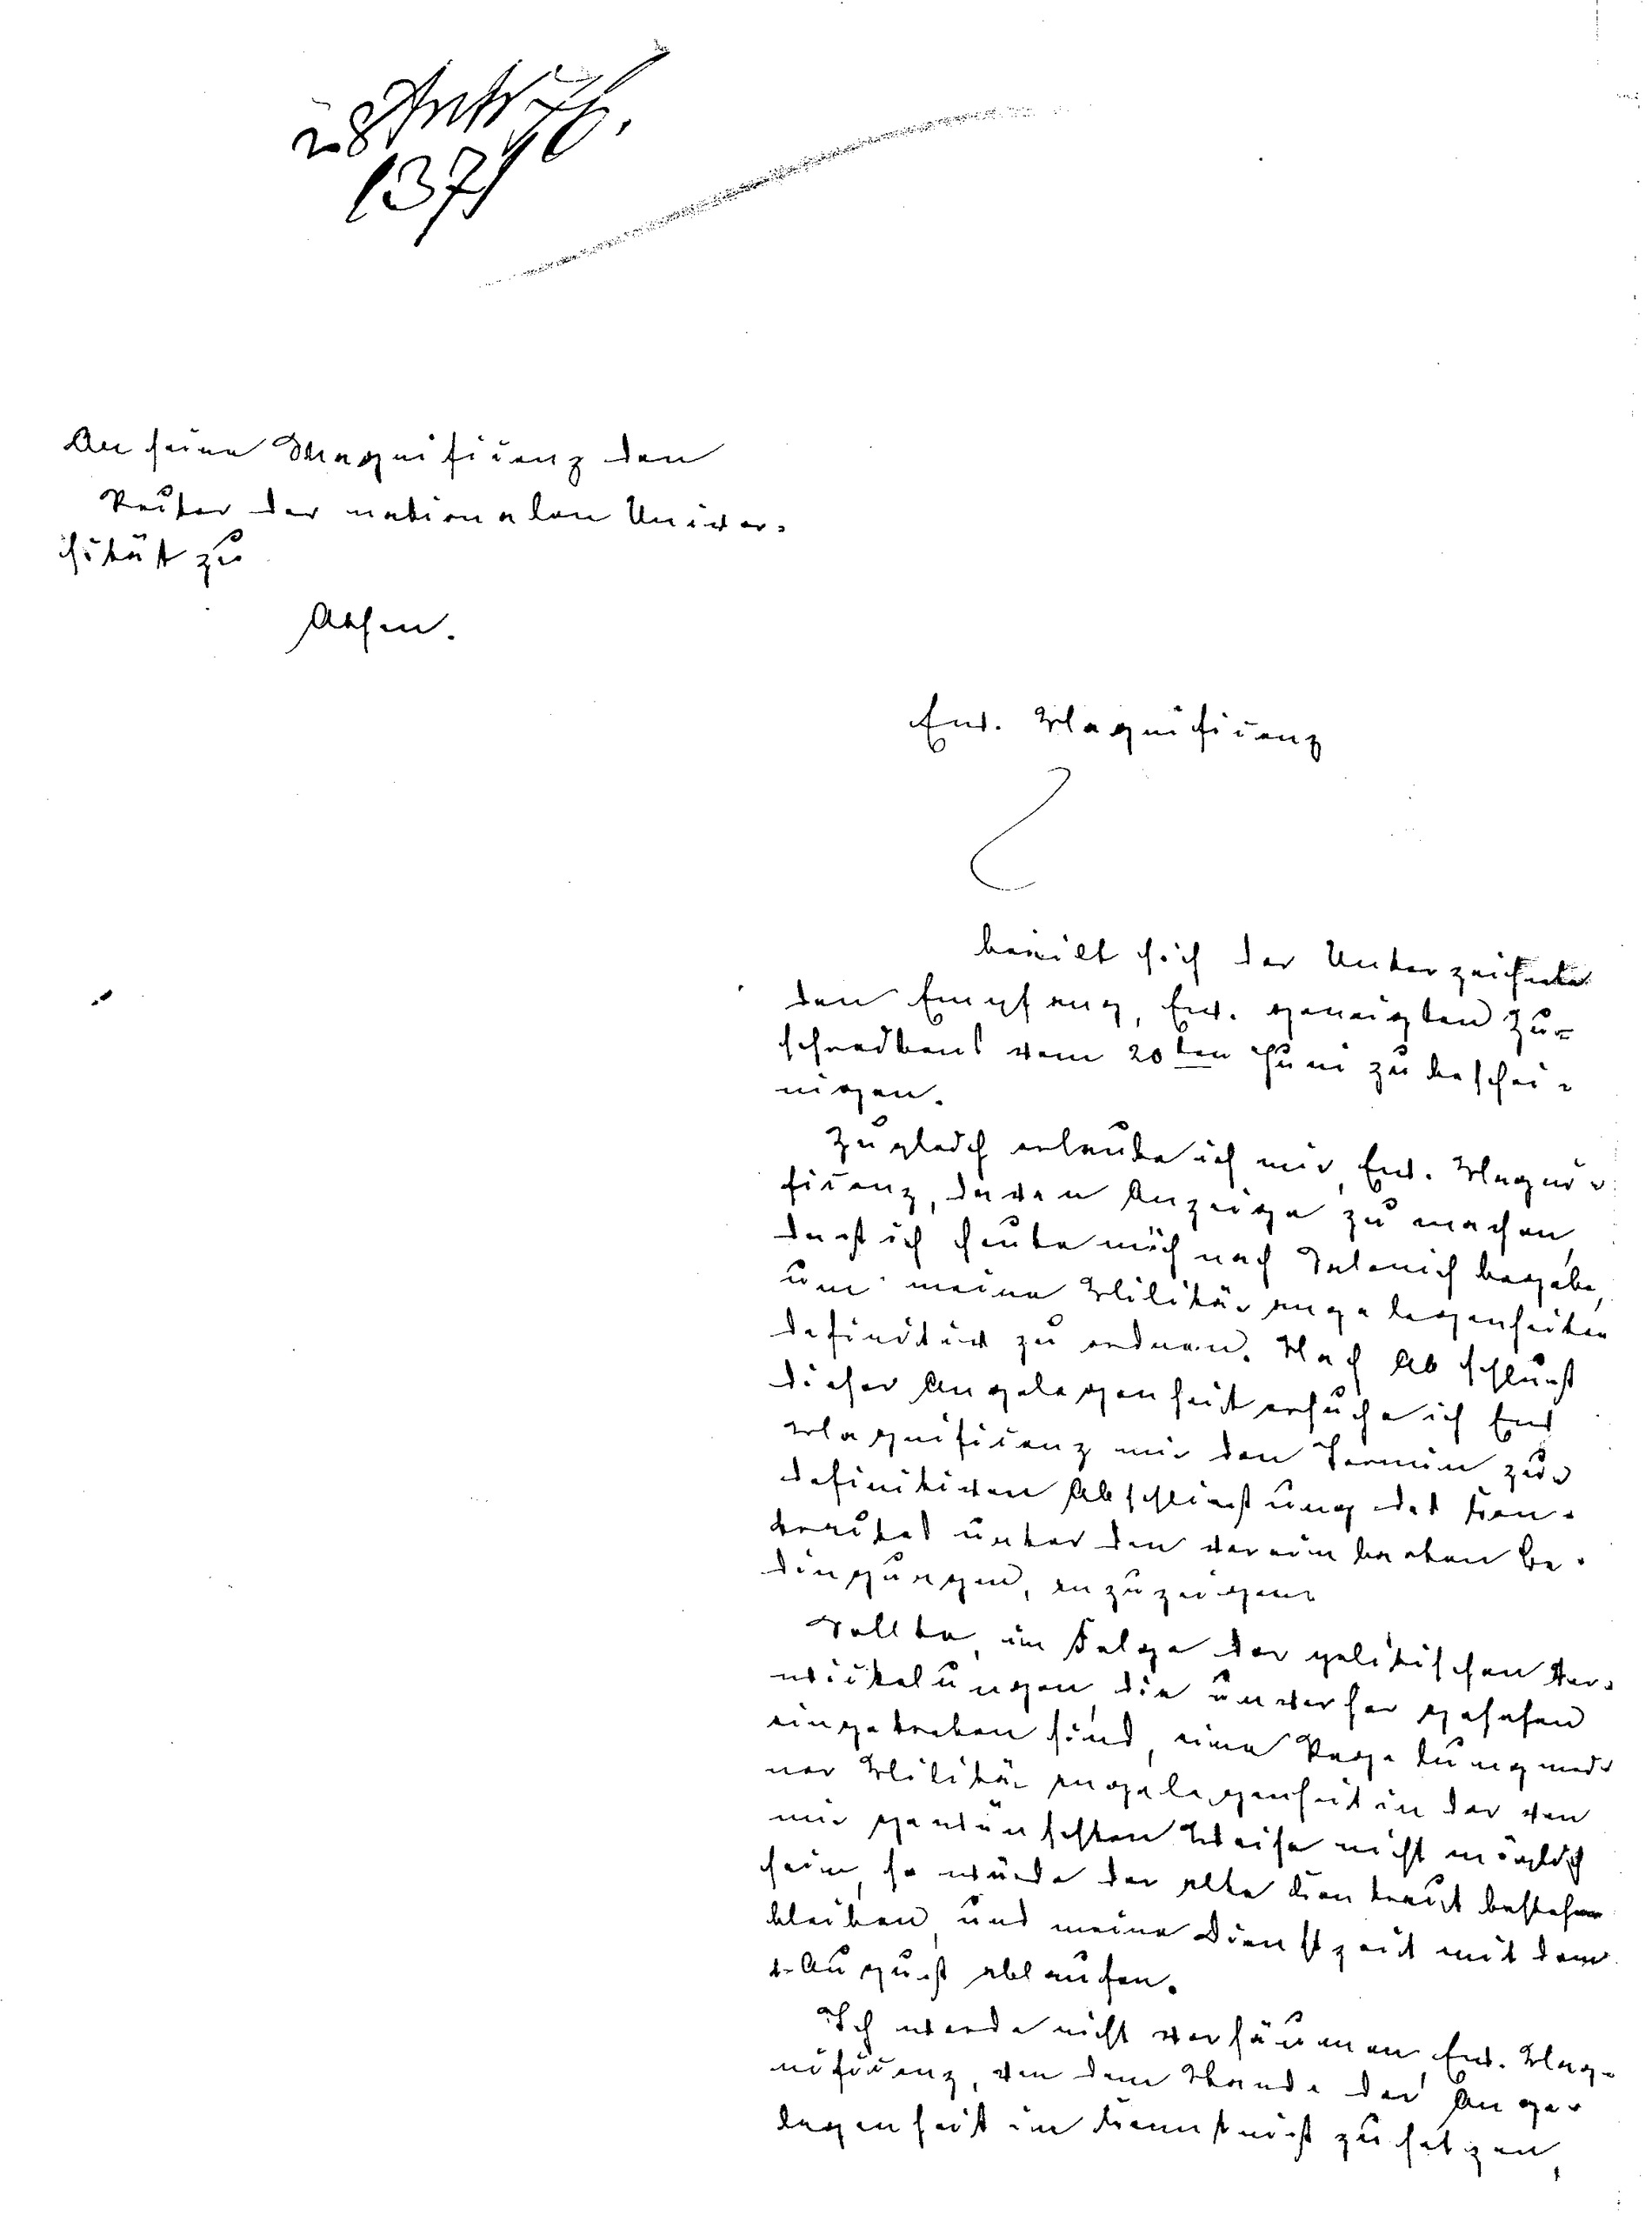 28
1371
An seine Magnificenz den
Rector der nationalen Univer-
sität zu
Athen.
Ew. Magnificenz
beeilt sich der Unterzeichnete
den Empfang, Ew. geneigten Zu-
schreibens vom 20ten Juni zu beschei-
nigen.
Zugleich erlaube ich mir, Ew. Magni-
ficenz, davon Anzeige zu machen,
dass ich heute mich nach Salonich begebe,
um meine Militärangelegenheiten
definitiv zu ordnen. Nach Abschluss
dieser Angelegenheit ersuche ich Ew
Magnificenz mir den Termin zur
definitiven Abschliessung des Con-
tractes unter den vereinbarten Be-
dingungen, anzuzeigen.
Sollte, in Folge der politischen Ver-
wickelungen, die unvorhergesehen
eingetreten sind, eine Regelung mei-
ner Militärangelegenheit in der von
mir gewünschten Weise nicht möglich
sein, so würde der alte Contract bestehen
bleiben, und meine Dienstzeit mit dem
August ablaufen.
Ich werde nicht versäumen, Ew. Mag-
nificenz, von dem Stande der Ange-
legenheit in Kenntniss zu setzen,